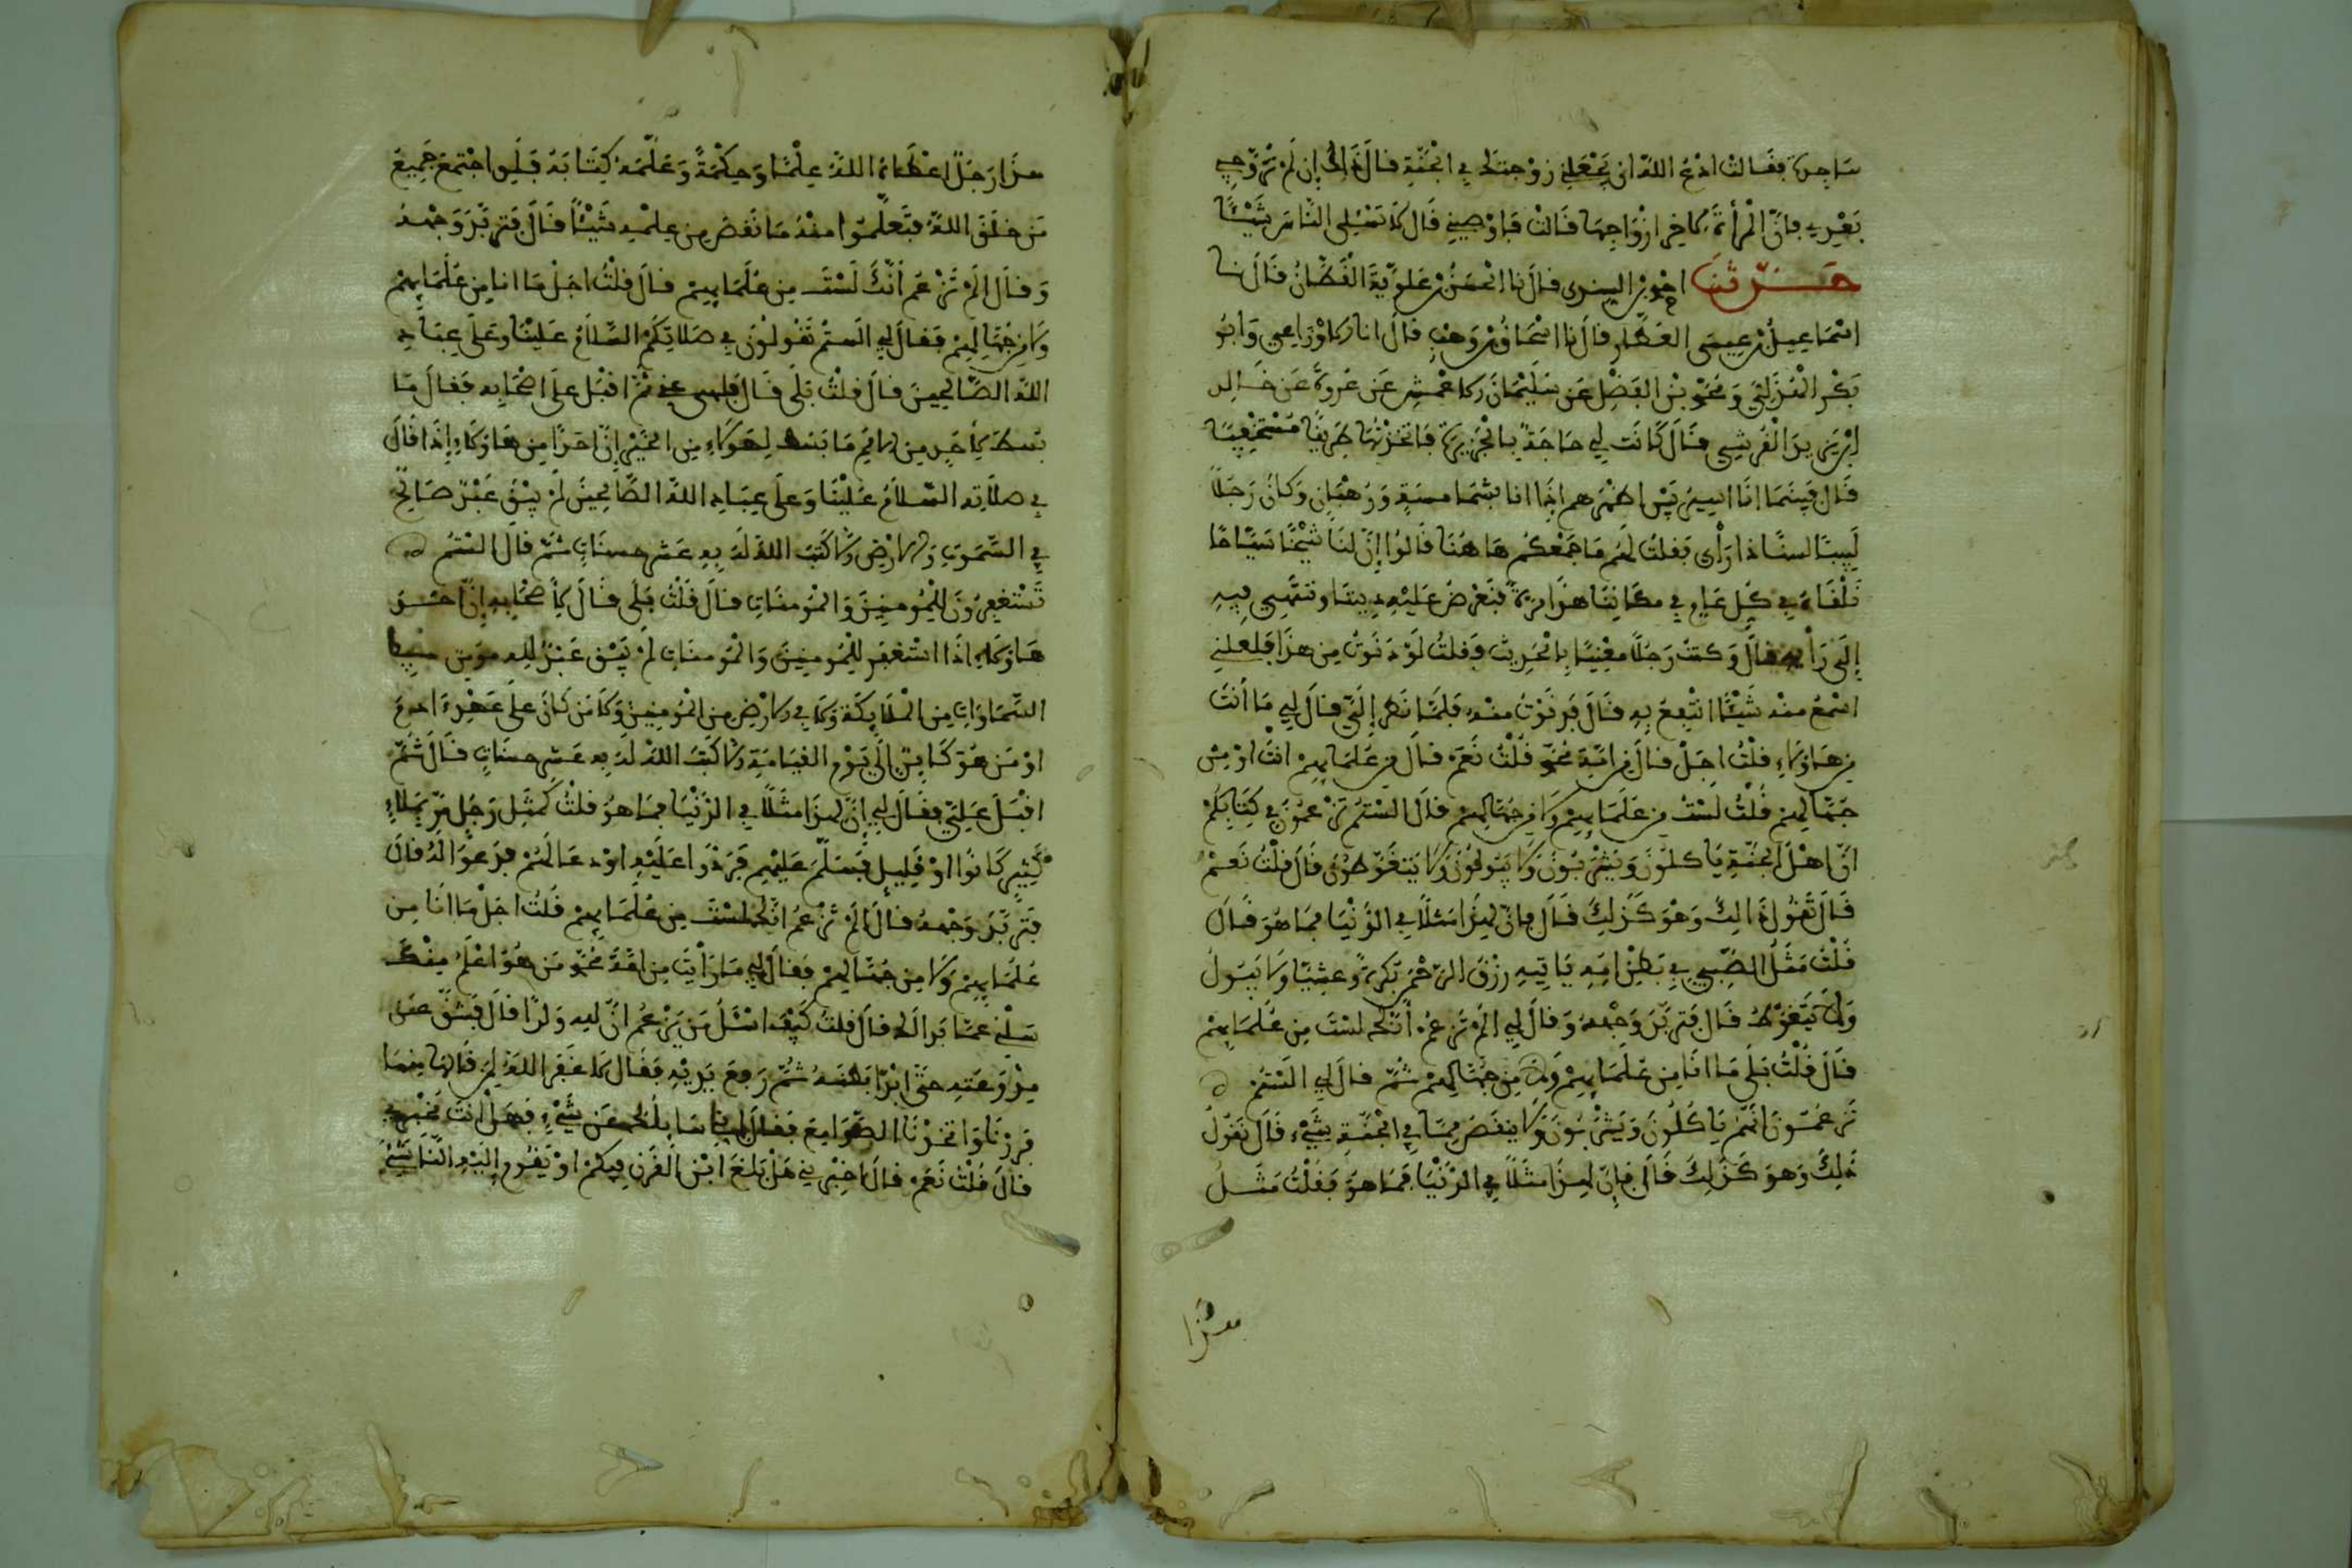 ساجدة فقالت ادع الله ان يجعلني زوجتك في الجنة قال ذاك إن لم تزوجي
بعدي فإن المرأة لآخر ازواجها قالت فاوصيني قال لا تسئلي الناس شيئا
حدثنا اخو السري قال نا الحسن بن علوية القطان قال نا
اسماعيل بن عيسى العطار قال نا اسحاق بن وهب قال انا الاوزاعي وابو
بكر الهذلي ومحمد بن الفضل عن سليمان الاعمش عن عروة عن خالد
بن يزيد القرشي قال كانت لي حاجة بالجزيرة فاتخذتها طريقا مستخفيا
قال فبينما انا اسير بين اظهرهم إذا انا بشمامسة ورهبان وكان رجلا
لبيبا لسنا ذا رأي فقلت لهم ما جمعكم هاهنا قالوا إن لنا شيخا سياحا
نلقاه في كل عام في مكاننا هذا مرة فنعرض عليه ديننا وننتهي فيه
إلى رأيه قال وكنت رجلا معنيا بالحديث فقلت لو دنوت من هذا فلعلني
اسمع منه شيئا انتفع به قال فدنوت منه فلما نظر إلي قال لي ما أنت
من هاؤلاء قلت اجل قال من امة محمد قلت نعم قال من علمايهم انت او من
جهالهم قلت لست من علمايهم ولا من جهالهم قال الستم تزعمون في كتابكم
ان اهل الجنة ياكلون ويشربون ولا يبولون ولا يتغوطون قال قلت نعم
قال نقول ذالك وهو كذلك قال فإن لهذا مثلا في الدنيا فما هو قال
قلت مثل الصبي في بطن امه ياتيه رزق الرحمن بكرة وعشيا ولا يبول
ولا يتغوط قال فتربد وجهه وقال لي الم تزعم أنك لست من علمايهم
قال قلت بلى ما انا من علمايهم ولا من جهالهم ثم قال لي الستم
تزعمون انكم ياكلون ويشربون ولا ينقص مما في الجنة شيء قال نقول
ذلك وهو كذلك قال فإن لهذا مثلا في الدنيا فما هو فقلت مثل
هذا
هذا رجل اعطاه الله علما وحكمة وعلمه كتابه فلو اجتمع جميع
من خلق الله فتعلموا منه ما نقص من علمه شيئا قال فتربد وجهه
وقال الم تزعم أنك لست من علمايهم قال قلت اجل ما انا من علمايهم
ولا من جهالهم فقال لي الستم تقولون في صلاتكم السلام علينا وعلى عباد
الله الصالحين قال قلت بلى قال فلهى عني ثم اقبل على اصحابه فقال ما
بسط لأحد من الامم ما بسط لهؤلاء من الخير إن احدا من هاؤلاء إذا قال
في صلاته السلام علينا وعلى عباد الله الصالحين لم يبق عبد صالح
في السموات والارض إلا كتب الله له به عشر حسنات ثم قال الستم
تستغفرون للمومنين والمومنات قال قلت بلى قال لأصحابه إن احد
هاؤلاء اذا استغفر للمومنين والمومنات لم يبق عبد لله مومن
السماوات من الملايكة ولا في الارض من المومنين ولا من كان على عهد ءادم
او من هو كاين إلى يوم القيامة إلا كتب الله له به عشر حسنات قال ثم
اقبل علي فقال لي إن لهذا مثلا في الدنيا فما هو قلت كمثل رجل مر بملاء
كثير كانوا او قليل فسلم عليهم فردوا عليه او دعا لهم فدعوا له قال
فتربد وجهه قال الم تزعم انك لست من علمايهم قلت اجل ما انا من
علمايهم ولا من جهالهم فقال لي ما رأيت من امة محمد من هو اعلم منك
سلني عما بدا لك قال قلت كيف اسئل من يزعم ان لله ولدا قال فشق عن
مدرعته حتى ابدا بطنه ثم رفع يديه فقال لا غفر الله لمن قالها منها
فررنا واتخذنا الصوامع فقال إنا سايلك عن شيء فهل انت مخبري
قال قلت نعم قال اخبرني هل بلغ ابن القرن فيكم او يقوم إليه الناشئ